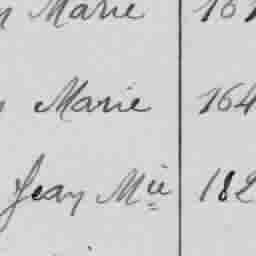 Marie 161
Marie 164
Jean Mie 182